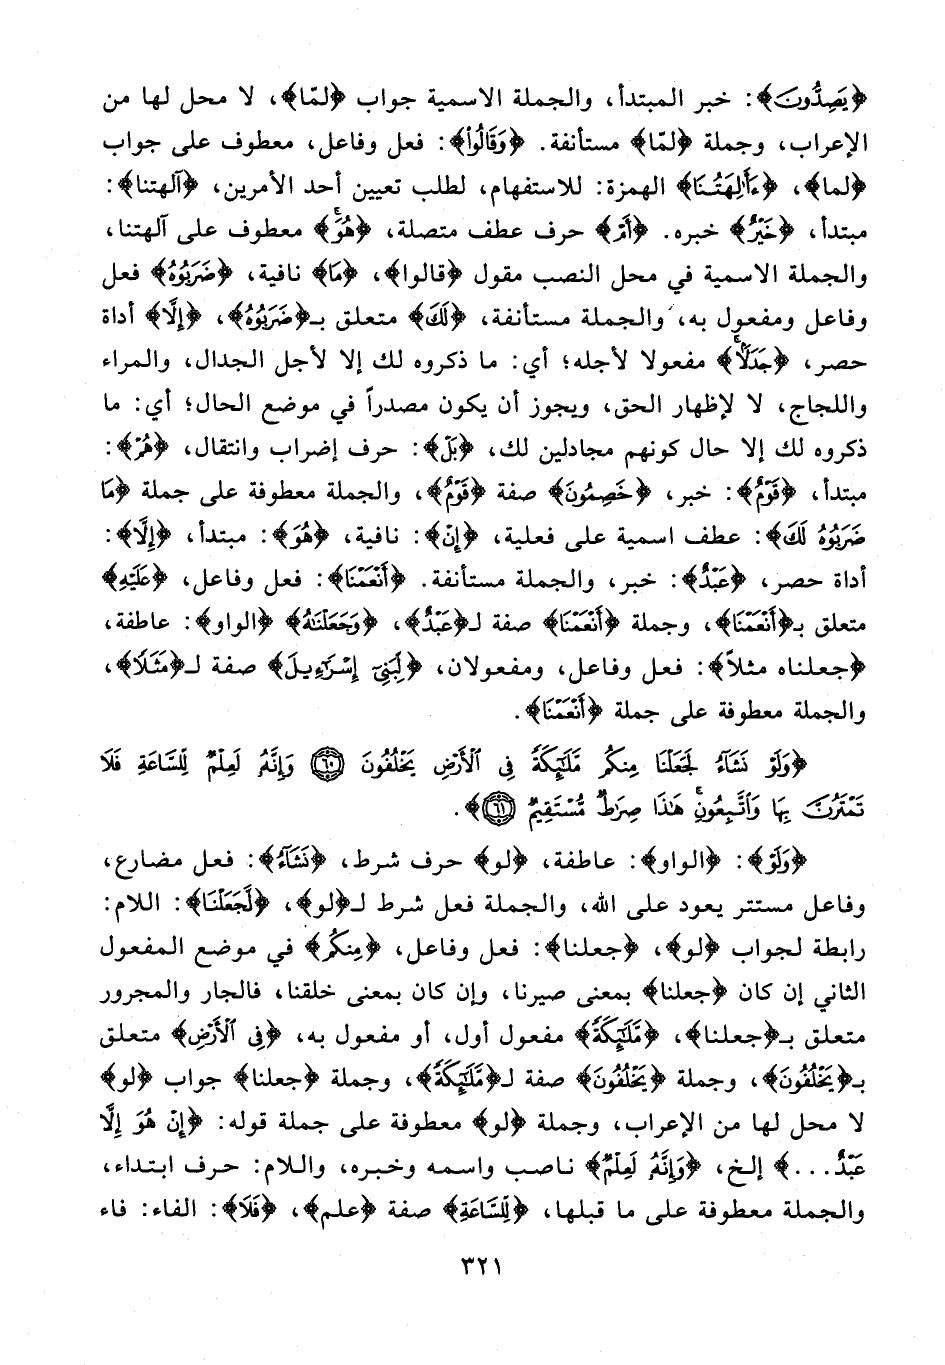 ﴿يَصِدُّونَ﴾: خبر المبتدأ، والجملة الاسمية جواب ﴿لمّا﴾، لا محل لها من
الإعراب، وجملة ﴿لمّا﴾ مستأنفة. ﴿وَقَالُوٓا۟﴾: فعل وفاعل، معطوف على جواب
﴿لما﴾، ﴿ءَأَٰلِهَتُنَا﴾ الهمزة: للاستفهام، لطلب تعيين أحد الأمرين، ﴿آلهتنا﴾:
مبتدأ، ﴿خَيْرٌ﴾ خبره. ﴿أَمْ﴾ حرف عطف متصلة، ﴿هُوَۚ﴾ معطوف على آلهتنا،
والجملة الاسمية في محل النصب مقول ﴿قالوا﴾، ﴿مَا﴾ نافية، ﴿ضَرَبُوهُ﴾ فعل
وفاعل ومفعول به، والجملة مستأنفة، ﴿لَكَ﴾ متعلق بـ﴿ضَرَبُوهُ﴾، ﴿إِلَّا﴾ أداة
حصر، ﴿جَدَلًاۚ﴾ مفعولا لأجله؛ أي: ما ذكروه لك إلا لأجل الجدال، والمراء
واللجاج، لا لإظهار الحق، ويجوز أن يكون مصدراً في موضع الحال؛ أي: ما
ذكروه لك إلا حال كونهم مجادلين لك، ﴿بَلْ﴾: حرف إضراب وانتقال، ﴿هُمْ﴾:
مبتدأ، ﴿قَوْمٌ﴾: خبر، ﴿خَصِمُونَ﴾ صفة ﴿قَوْمٌ﴾، والجملة معطوفة على جملة ﴿مَا
ضَرَبُوهُ لَكَ﴾: عطف اسمية على فعلية، ﴿إِنْ﴾: نافية، ﴿هُوَ﴾: مبتدأ، ﴿إِلَّا﴾:
أداة حصر، ﴿عَبْدٌ﴾: خبر، والجملة مستأنفة. ﴿أَنْعَمْنَا﴾: فعل وفاعل، ﴿عَلَيْهِ﴾
متعلق بـ﴿أَنْعَمْنَا﴾، وجملة ﴿أَنْعَمْنَا﴾ صفة لـ﴿عَبْدٌ﴾، ﴿وَجَعَلْنَٰهُ﴾ ﴿الواو﴾: عاطفة،
﴿جعلناه مثلاً﴾: فعل وفاعل، ومفعولان، ﴿لِّبَنِىٓ إِسْرَٰٓءِيلَ﴾ صفة لـ﴿مَثَلًا﴾،
والجملة معطوفة على جملة ﴿أَنْعَمْنَا﴾.
﴿وَلَوْ نَشَآءُ لَجَعَلْنَا مِنكُم مَّلَٰٓئِكَةً فِى ٱلْأَرْضِ يَخْلُفُونَ ﴿٦٠﴾ وَإِنَّهُۥ لَعِلْمٌ لِّلسَّاعَةِ فَلَا
تَمْتَرُنَّ بِهَا وَٱتَّبِعُونِۚ هَٰذَا صِرَٰطٌ مُّسْتَقِيمٌ ﴿٦١﴾﴾.
﴿وَلَوْ﴾: ﴿الواو﴾: عاطفة، ﴿لو﴾ حرف شرط، ﴿نَشَآءُ﴾: فعل مضارع،
وفاعل مستتر يعود على الله، والجملة فعل شرط لـ﴿لو﴾، ﴿لَجَعَلْنَا﴾: اللام:
رابطة لجواب ﴿لو﴾، ﴿جعلنا﴾: فعل وفاعل، ﴿مِنكُم﴾ في موضع المفعول
الثاني إن كان ﴿جعلنا﴾ بمعنى صيرنا، وإن كان بمعنى خلقنا، فالجار والمجرور
متعلق بـ﴿جعلنا﴾، ﴿مَّلَٰٓئِكَةً﴾ مفعول أول، أو مفعول به، ﴿فِى ٱلْأَرْضِ﴾ متعلق
بـ﴿يَخْلُفُونَ﴾، وجملة ﴿يَخْلُفُونَ﴾ صفة لـ﴿مَّلَٰٓئِكَةً﴾، وجملة ﴿جعلنا﴾ جواب ﴿لو﴾
لا محل لها من الإعراب، وجملة ﴿لو﴾ معطوفة على جملة قوله: ﴿إِنْ هُوَ إِلَّا
عَبْدٌ...﴾ إلخ، ﴿وَإِنَّهُۥ لَعِلْمٌ﴾ ناصب واسمه وخبره، واللام: حرف ابتداء،
والجملة معطوفة على ما قبلها، ﴿لِّلسَّاعَةِ﴾ صفة ﴿علم﴾، ﴿فَلَا﴾: الفاء: فاء
٣٢١